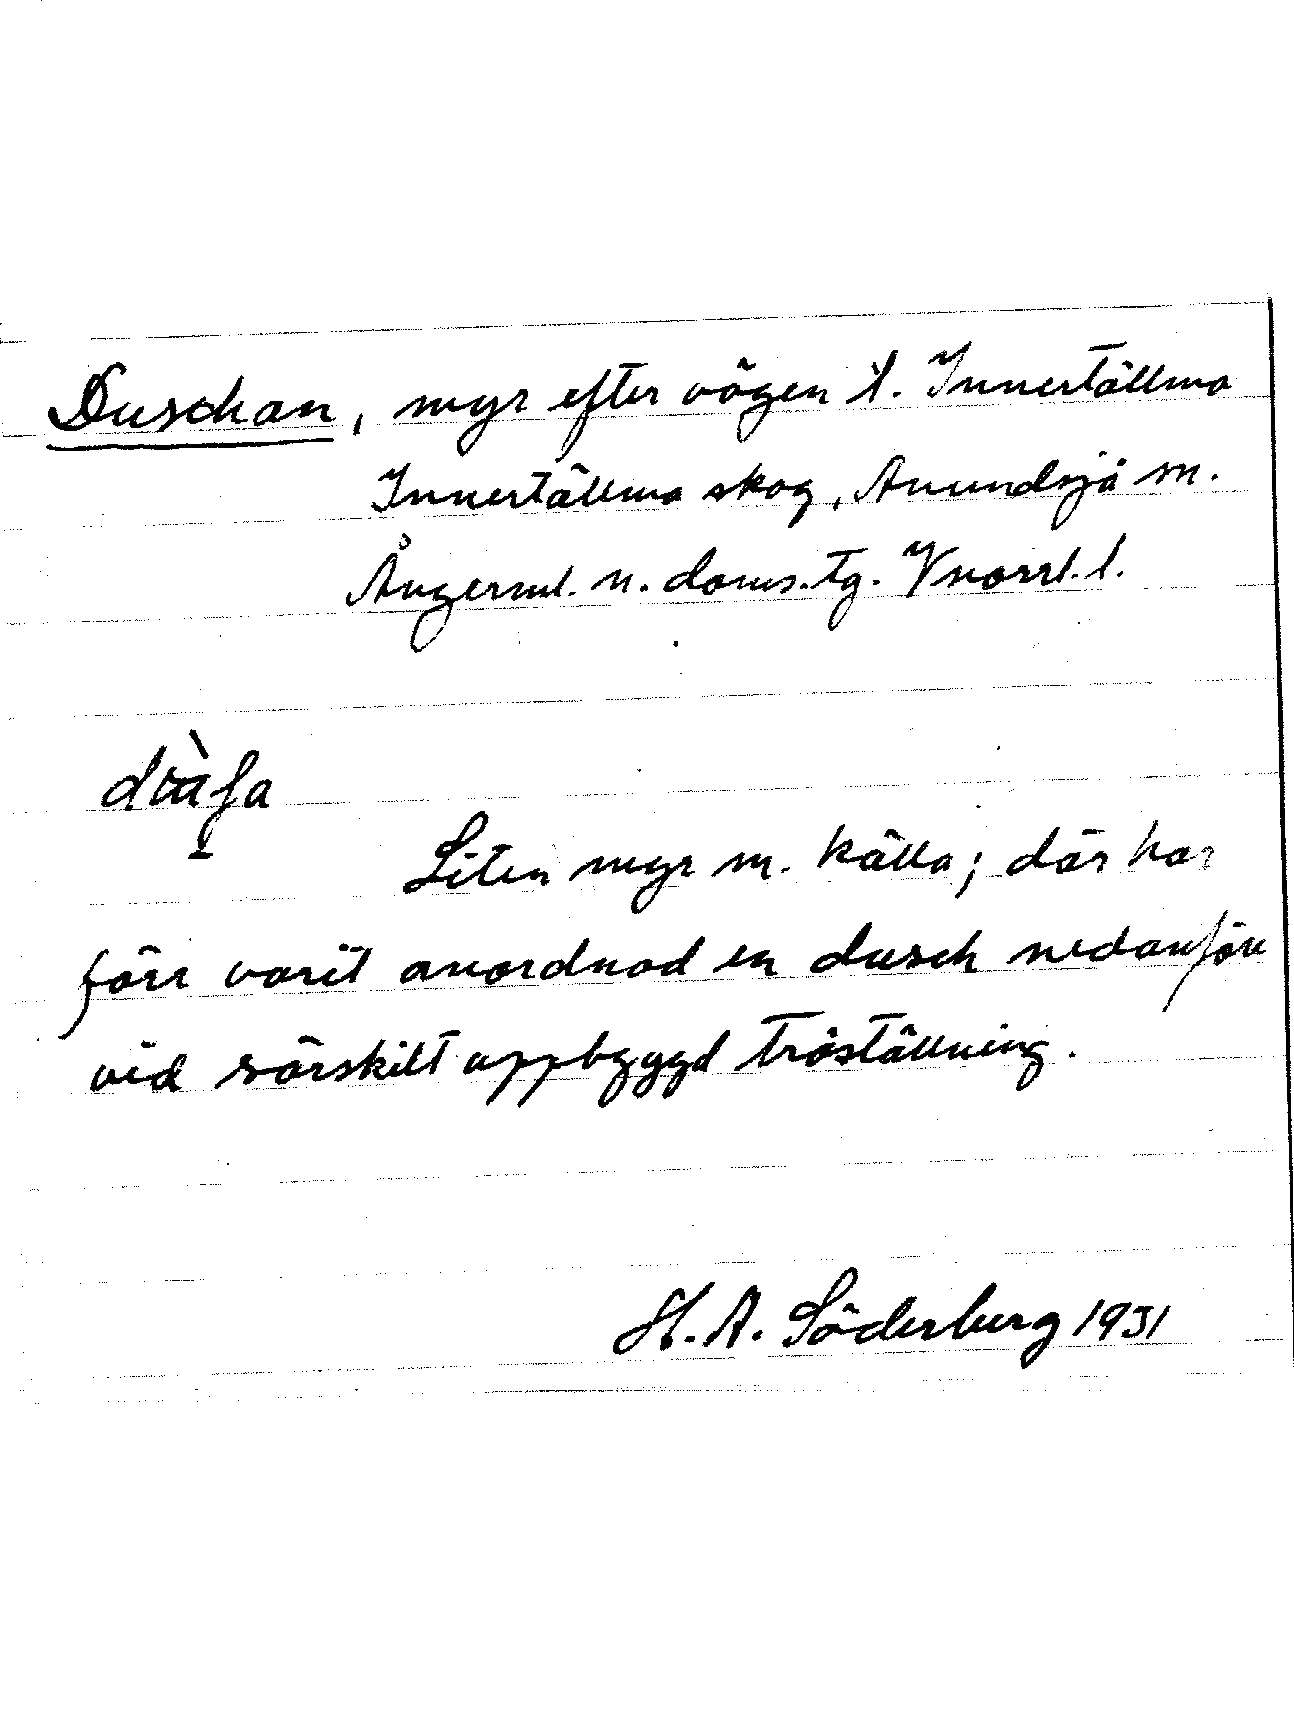 Duschan, myr efter vägen t. Innertällmo
Innertällmo skog, Anundsjö sn.
Ångerml. n. doms. tg. Vnorrl. l.
Liten myr m. källa; där har
förr varit anordnad en dusch nedanför
vid särskilt uppbyggd träställning.
H. A. Söderberg 1931